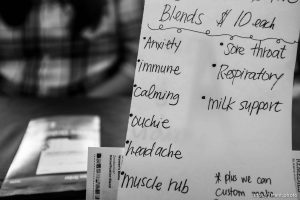 Blends $10 each
•Anxiety
•immune
•Calming
•Ouchie
•headache
•Muscle rub
•Sore throat
•Respiratory
•milk support
* plus we can
Custom make